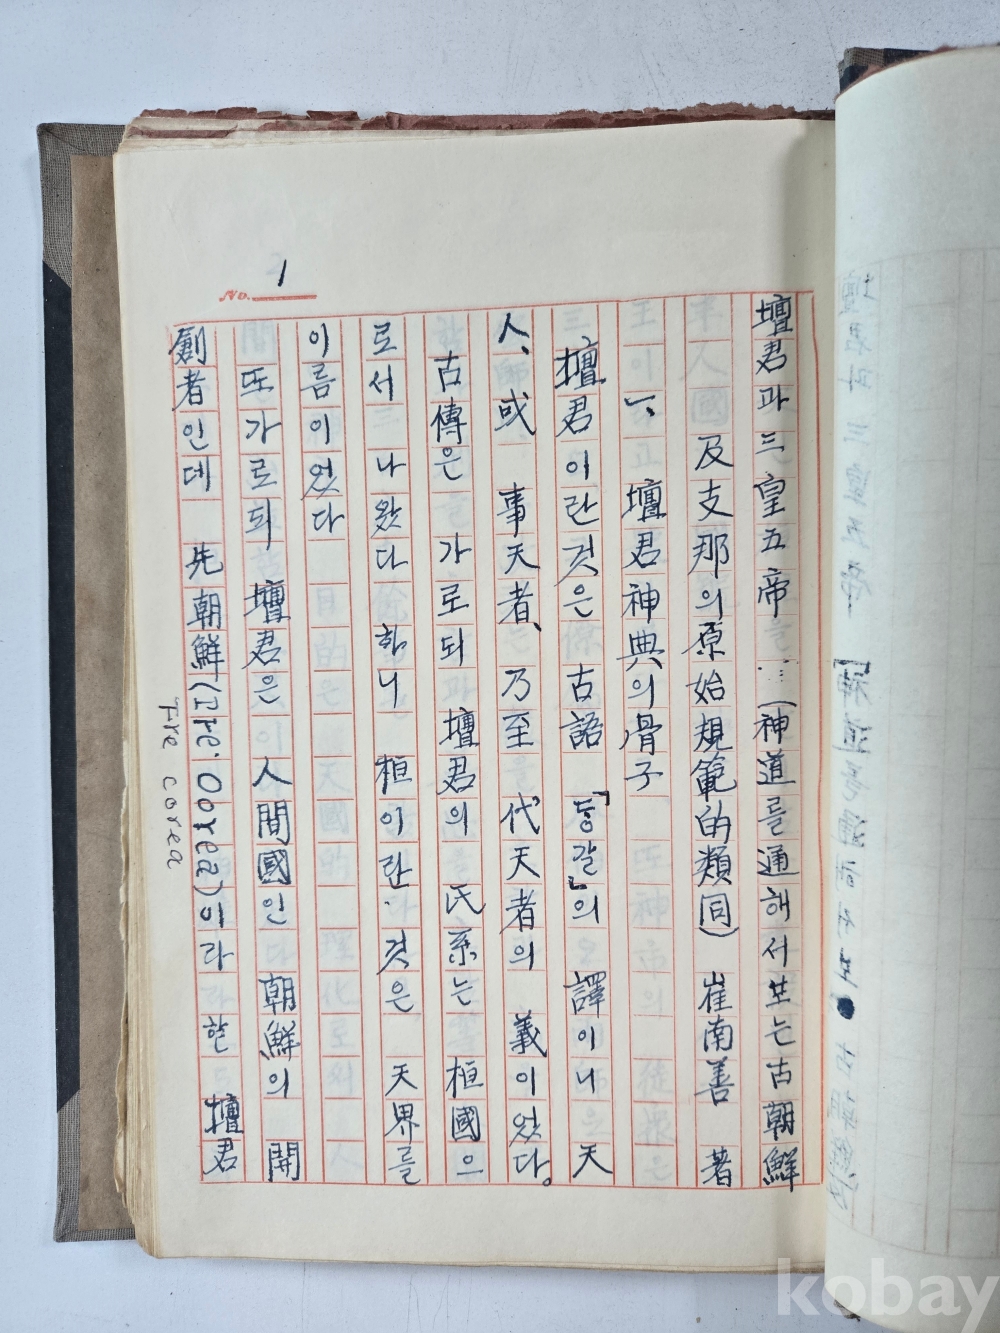 No. 1
壇君과 三皇五帝 (神道를 通해서 보는 古朝鮮
及支那의 原始規範的類同) 崔南善 著
1、壇君神典의 骨子
壇君이란것은 古語 「등갈」의 譯이니 天
人、或 事天者、乃至 代天者의 義이었다。
古傳은 가로되 壇君의 氏系는 桓國으
로서 나왔다 하니 桓이란 것은 天界를
이름이었다
또가로되 壇君은 人間國인 朝鮮의 開
創者인데 先朝鮮(Tre·Oorea)이라한 壇君
Tre corea
kobay